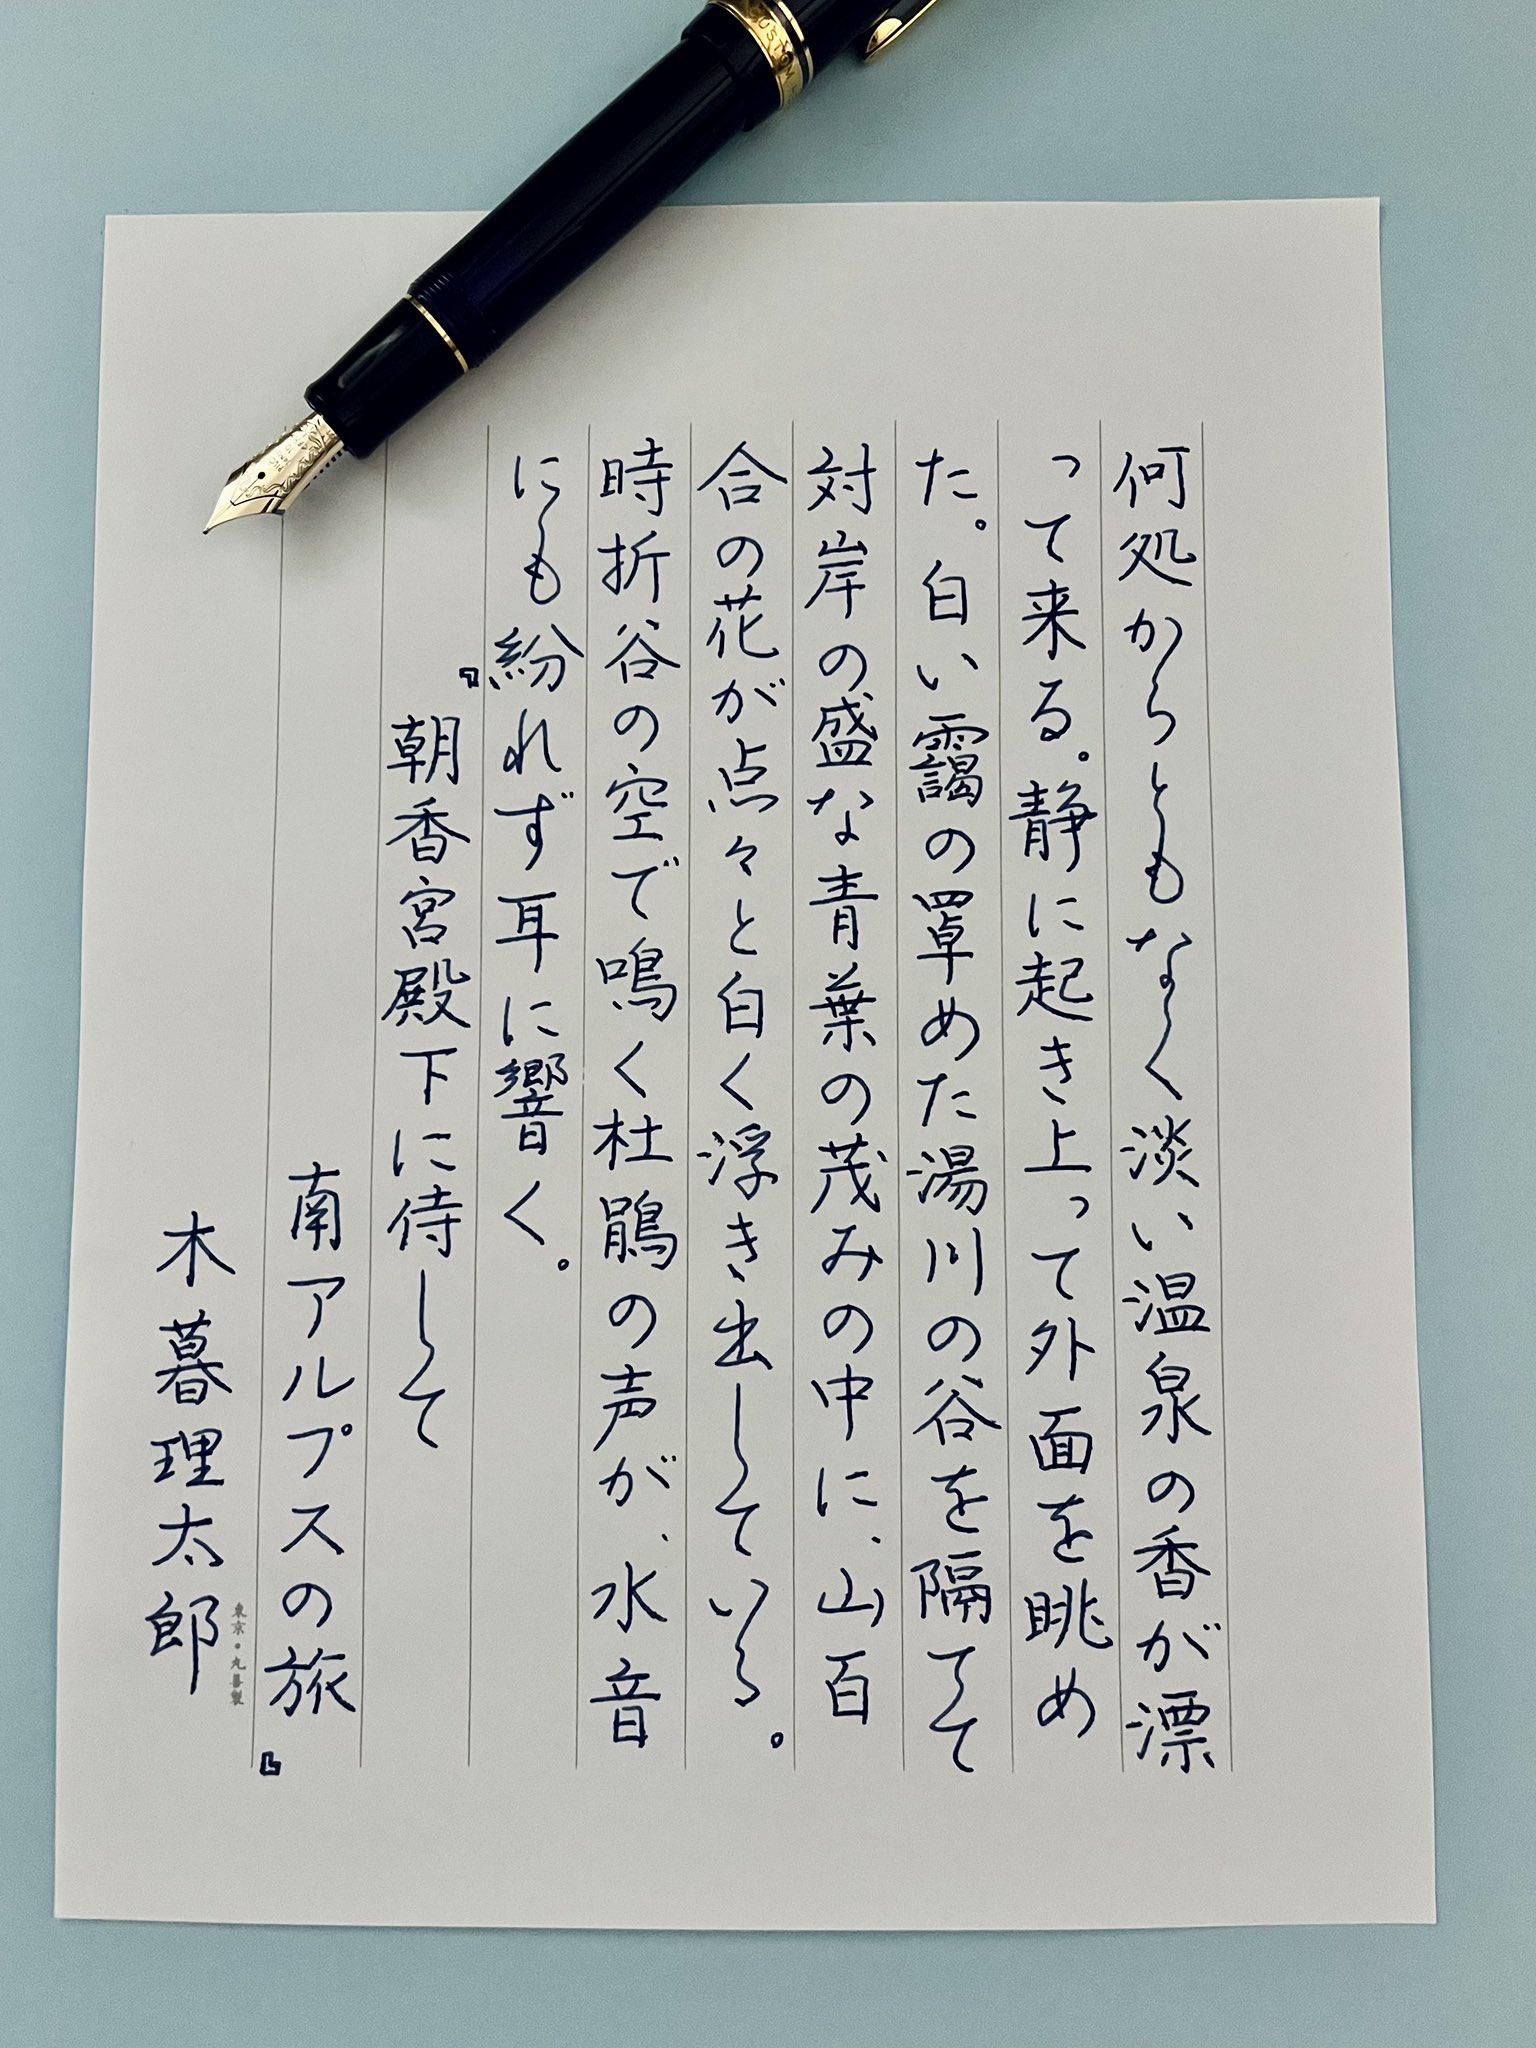 何処からともなく淡い温泉の香が漂
って来る。静に起き上って外面を眺め
た。白い靄の罩めた湯川の谷を隔てて
対岸の盛な青葉の茂みの中に、山百
合の花が点々と白く浮き出している。
時折谷の空で鳴く杜鵑の声が、水音
にも紛れず耳に響く。
『朝香宮殿下に侍して
南アルプスの旅』
木暮理太郎
東京・丸善製